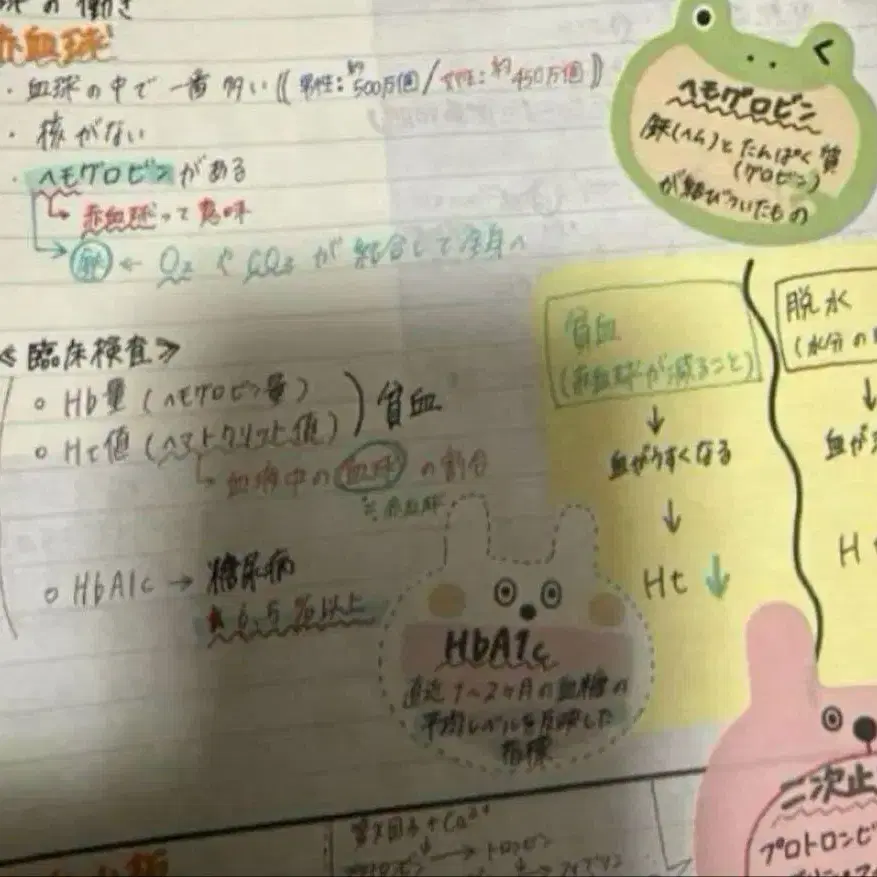 の働き
赤血球
・血球の中で一番多い((男性:約500万個/女性:約450万個))
・核がない
・ヘモグロビンがある
↳赤血球って意味
→鉄←O₂やCO₂が結合して全身へ
ヘモグロビン
鉄(ヘム)とたんぱく質
(グロビン)
が結びついたもの
≪臨床検査≫
○Hb量(ヘモグロビン量)
○Ht値(ヘマトクリット値)
貧血
↳血液中の血球の割合
≒赤血球
○HbA1c→糖尿病
6.5%以上
HbA1c
直近1~2ヶ月の血糖の
平均レベルを反映した
指標
貧血
(赤血球が減ること)
↓
血がうすくなる
↓
Ht↓
脱水
(水分の
↓
血が
H
二次止
プロトロンビ
+Ca²⁺
→トロンビン